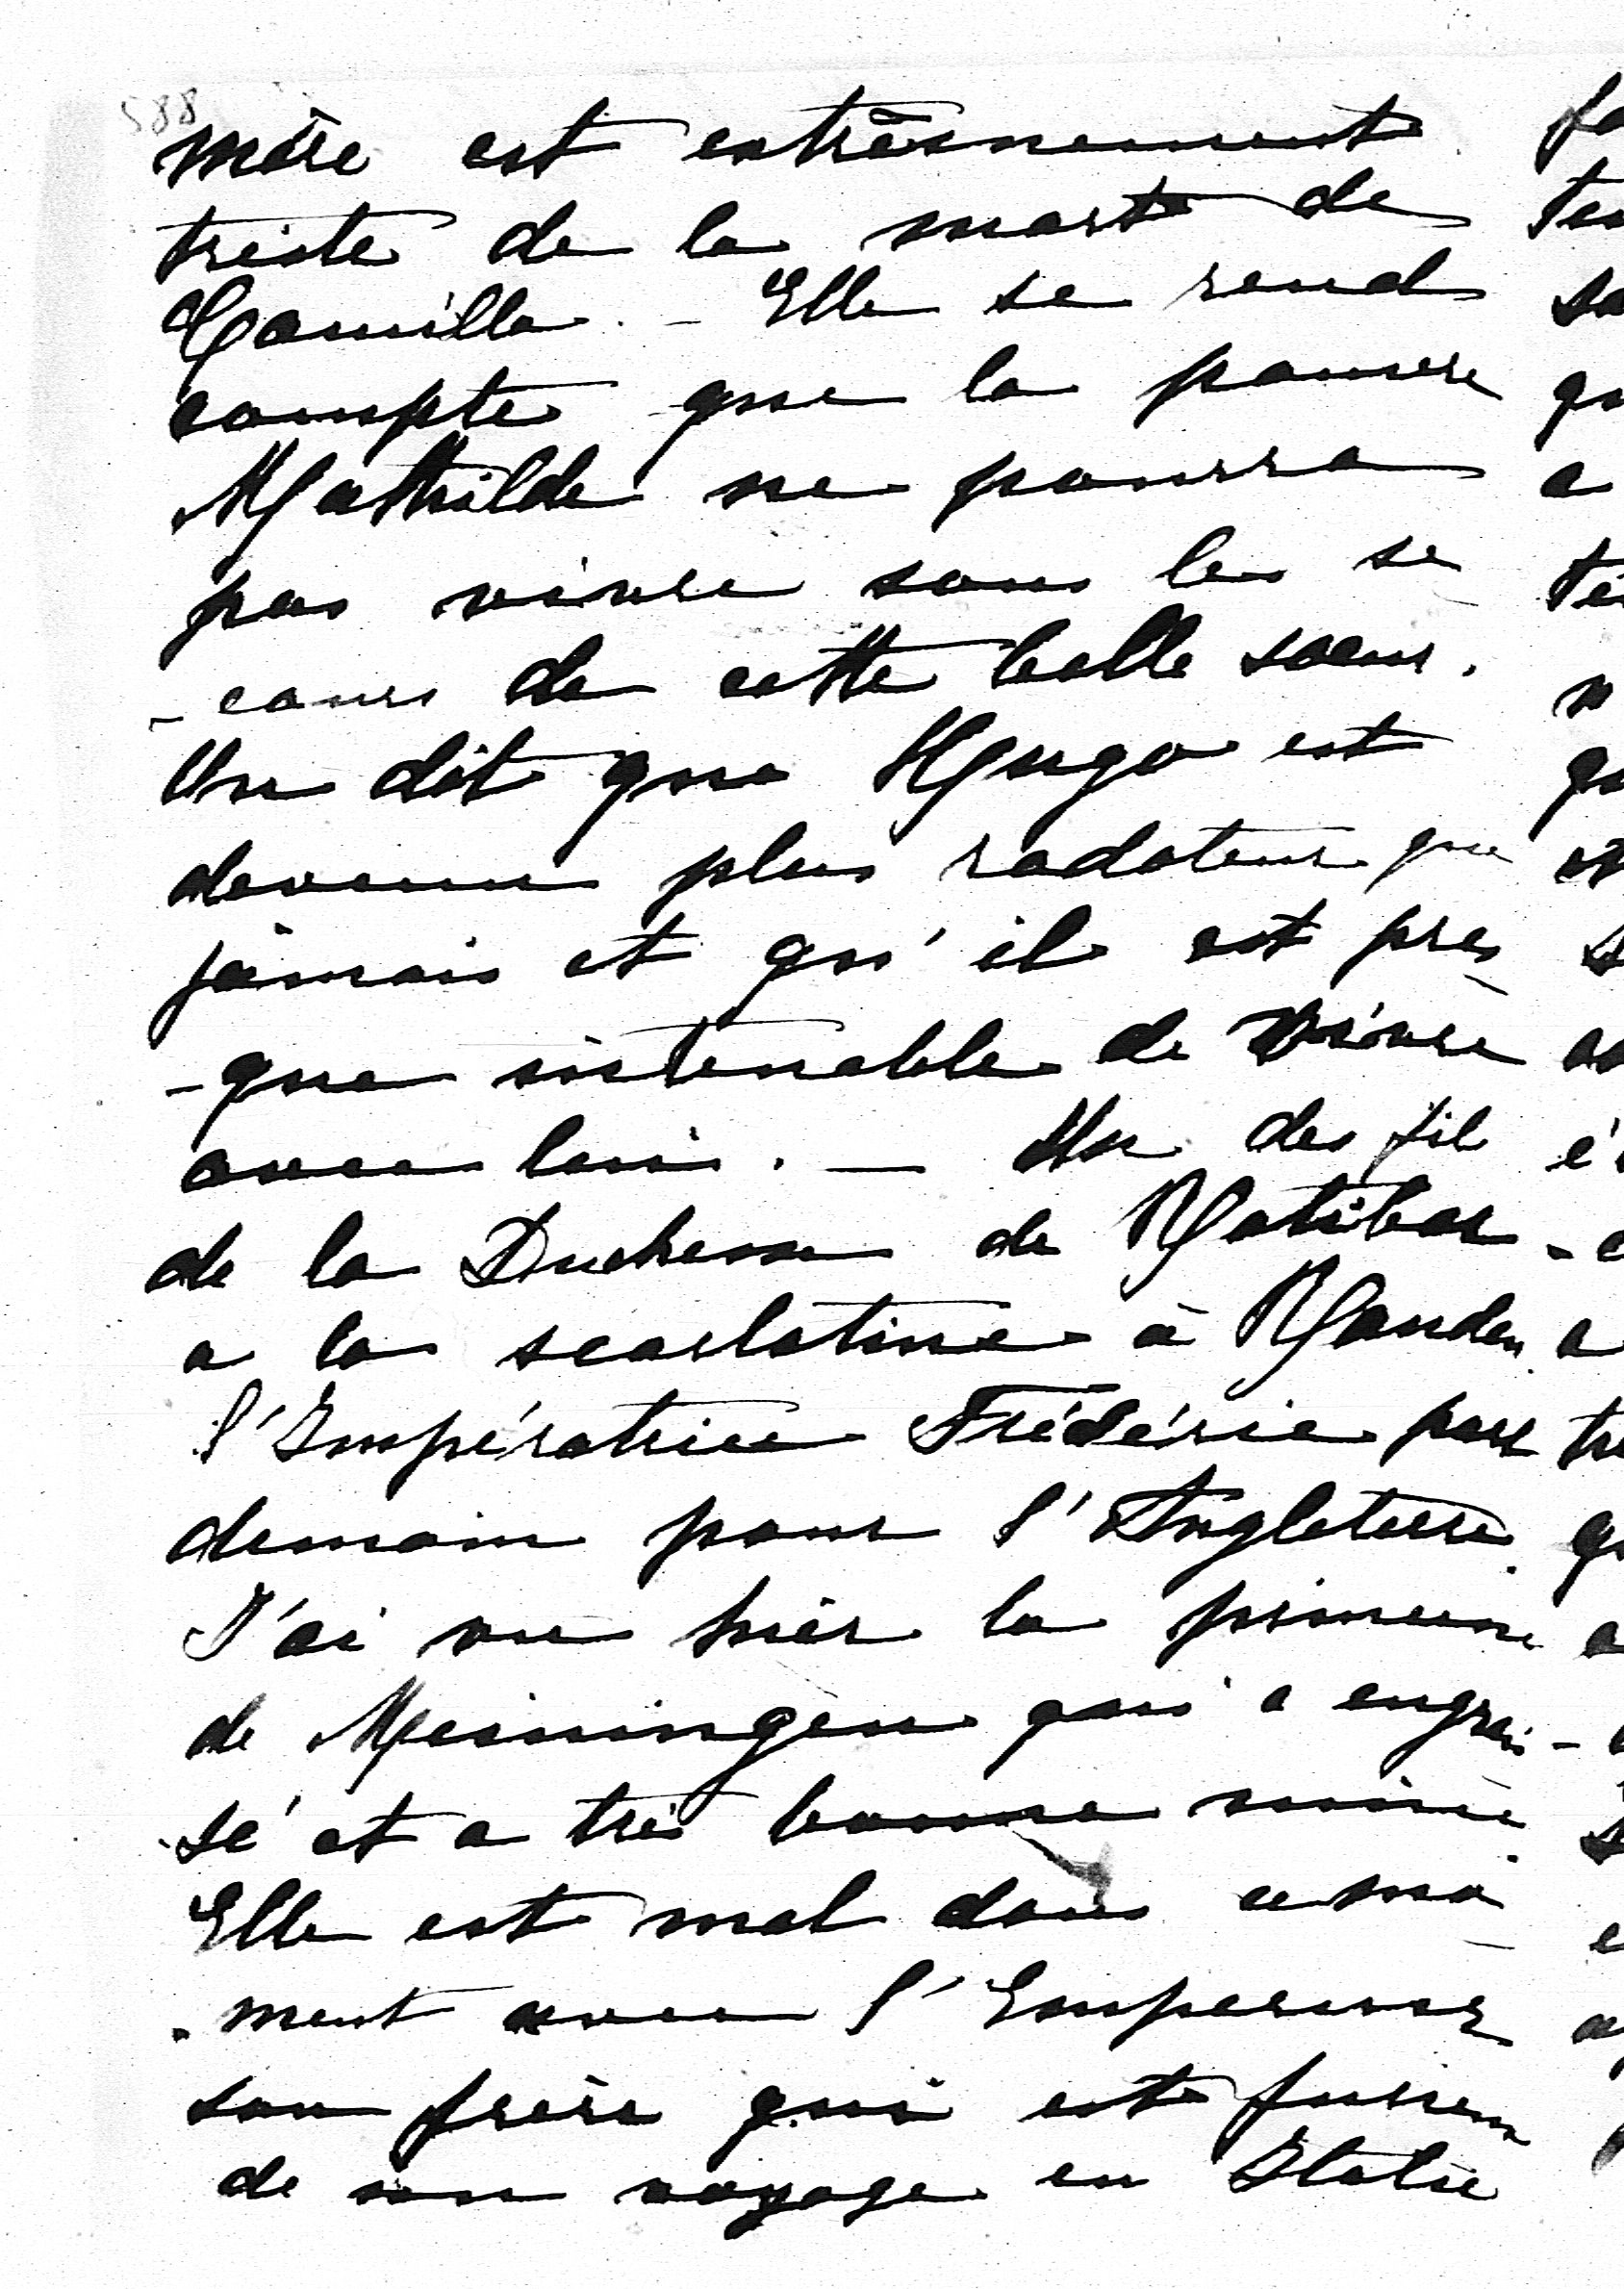 588
mère est extrêmement
triste de la mort de
Camille. - Elle se rend
compte que la pauvre
Mathilde ne pourra
pas vivre sans le se
- cours de cette belle soeur.
On dit que Hugo est
devenu plus radoteur que
jamais et qu'il est pres
- que intenable de vivre
avec lui. — Un des fils
de la Duchesse de Ratibor
a la scarlatine à Rauden.
l'Impératrice Frédéric part
demain pour l'Angleterre.
J'ai vu hier la princesse
de Meiningen qui a engrais-
sé et a très bonne mine.
Elle est mal dans ce mo
- ment avec l'Empereur
son frère qui est furieux
de son voyage en Italie